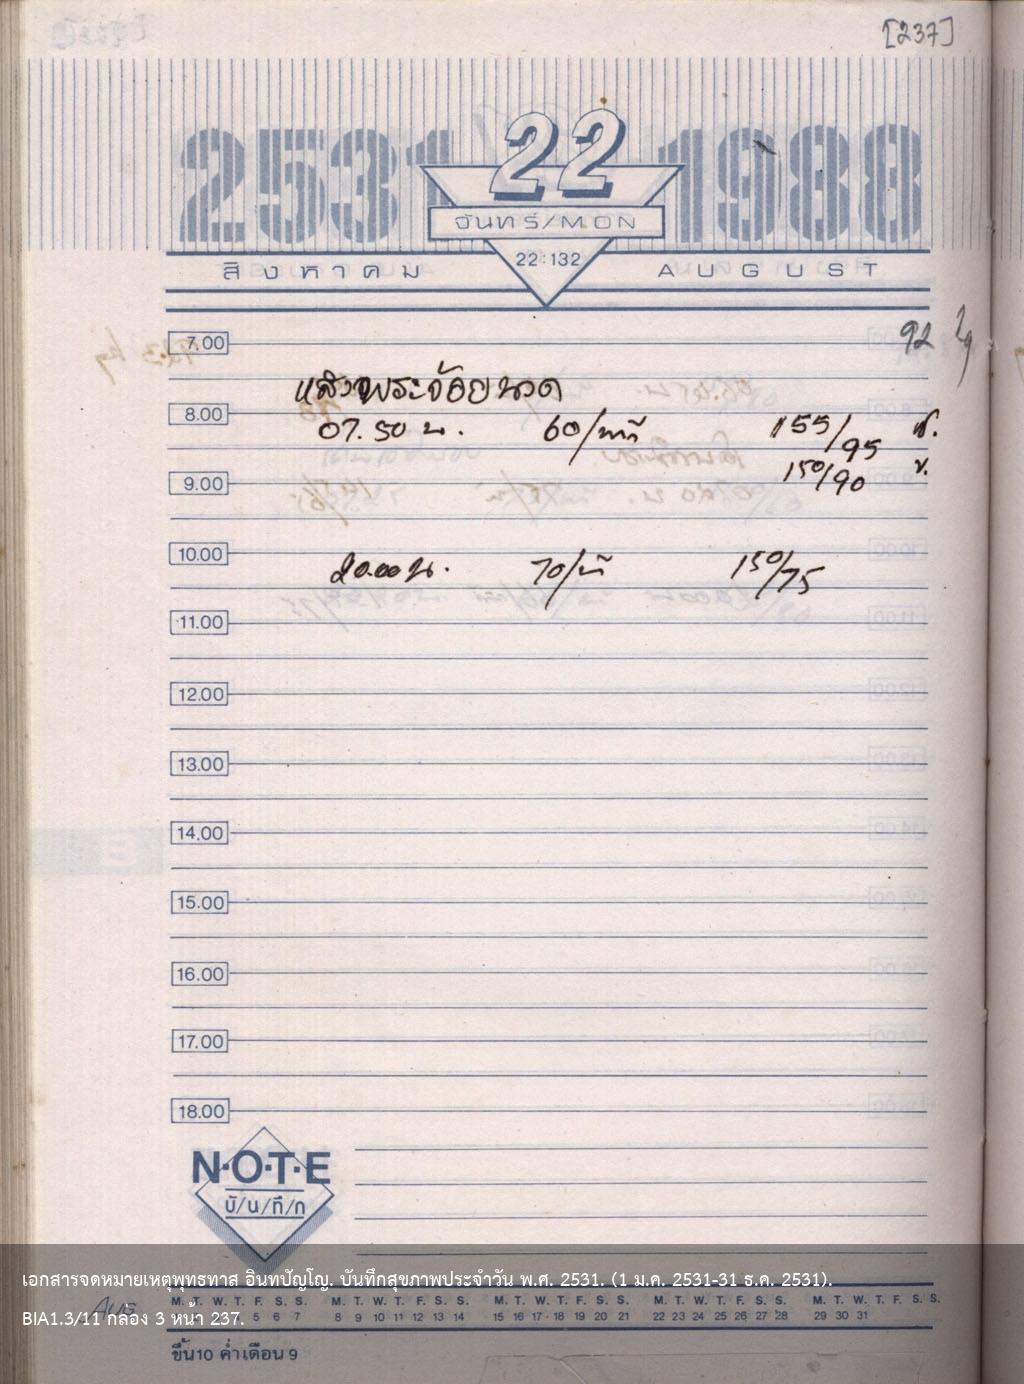 [237]
2531 22 1988
จันทร์/MON
22:132
สิงหาคม AUGUST
7.00
92
พระจ้อยนวด
8.00
07.50 น. 60/นาที 155/95 ซ.
150/90 ข.
9.00
10.00
20.00 น. 70/นาที 150/75
11.00
12.00
13.00
14.00
15.00
16.00
17.00
18.00
N·O·T·E
บั/น/ทึ/ก
เอกสารจดหมายเหตุพุทธทาส อินทปัญโญ. บันทึกสุขภาพประจำวัน พ.ศ. 2531. (1 ม.ค. 2531-31 ธ.ค. 2531).
AUG M. T. W. T. F. S. S. M. T. W. T. F. S. S. M. T. W. T. F. S. S. M. T. W. T. F. S. S. M. T. W. T. F. S. S.
BIA1.3/11 กล่อง 3 หน้า 237.
5 6 7 8 9 10 11 12 13 14 15 16 17 18 19 20 21 22 23 24 25 26 27 28 29 30 31
ขึ้น 10 ค่ำ เดือน 9